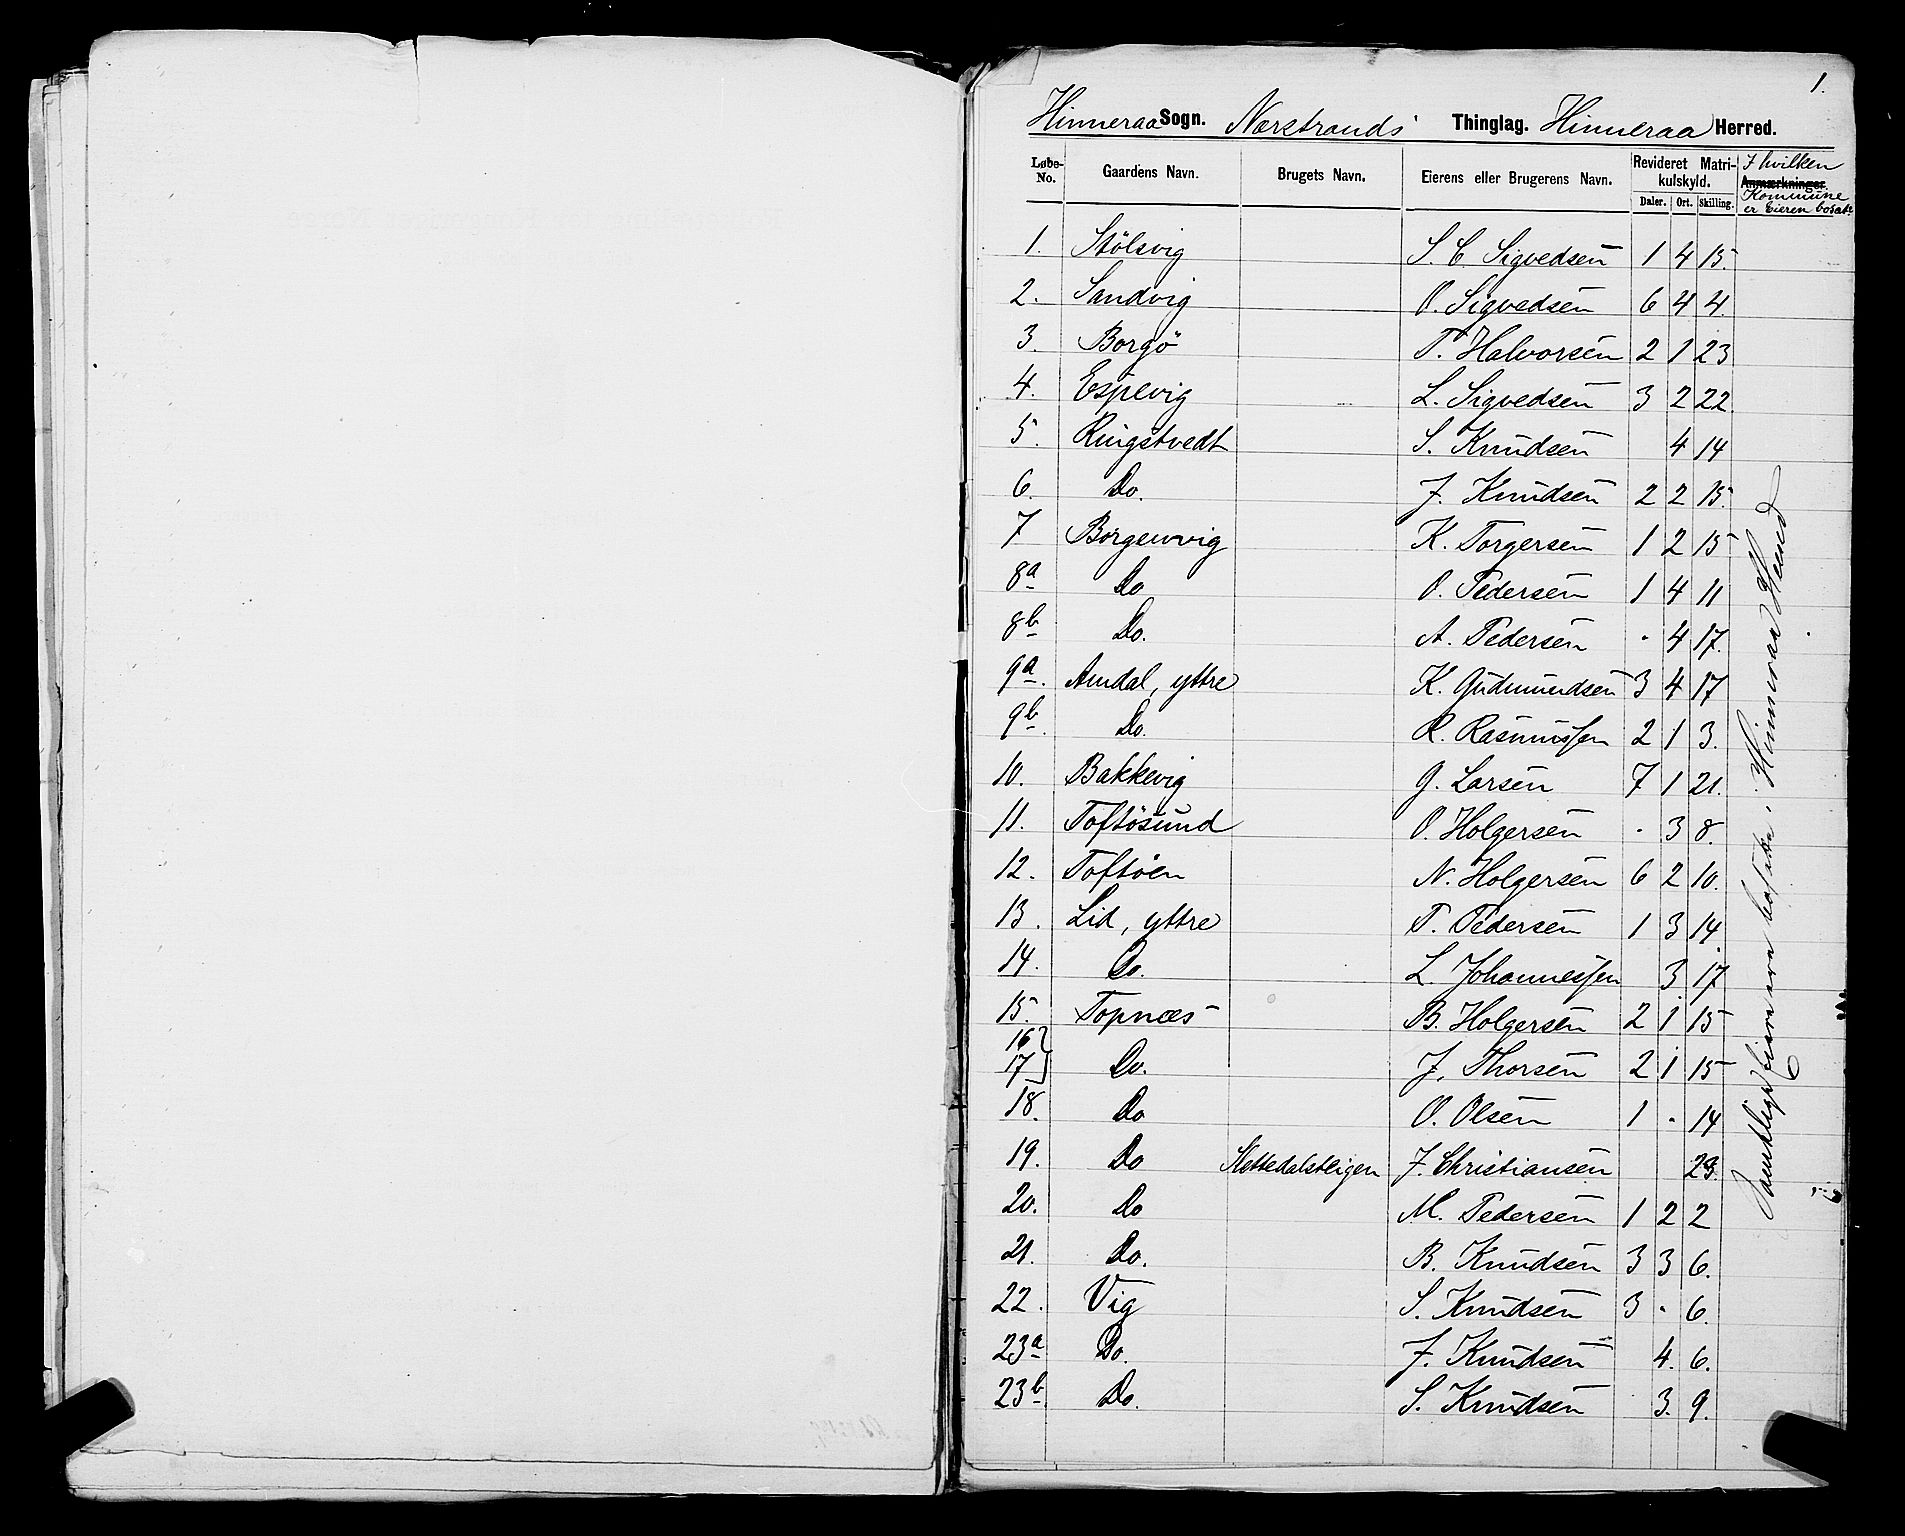 1.
Hinneraa Sogn. Nærstrands' Thinglag. Hinneraa Herred.
Løbe-No. Gaardens Navn. Brugets Navn. Eierens eller Brugerens Navn. Revideret Matrikulskyld. Daler. Ort. Skilling. Anmærkninger. I hvilken Kommune er Eieren bosat
1. Stölsvig S. C. Sigvedsen 1 4 15.
2. Sandvig O. Sigvedsen 6 4 4.
3. Borgö T. Halvorsen 2 1 23
4. Espevig L. Sigvedsen 3 2 22
5. Ringstvedt S. Knudsen 4 14
6. Do. J. Knudsen 2 2 15.
7 Borgenvig K. Torgersen 1 2 15
8a Do O. Pedersen 1 4 11
8b Do. A. Pedersen - 4 17.
9a. Amdal, yttre K. Gudmundsen 3 4 17
9b. Do. R. Rasmussen 2 1 3.
10. Bakkevig G. Larsen 7 1 21.
11. Toftösund O. Holgersen - 3 8.
12. Toftöen N. Holgersen 6 2 10.
13. Lid, yttre T. Pedersen 1 3 14.
14. Do. L. Johannessen 3 17
15. Topnæs B. Holgersen 2 1 15
16
17 Do. J. Thorsen 2 1 15
18. Do O. Olsen 1 - 14
19. Do J. Christiansen 23.
20. Do M. Pedersen 1 2 2
21. Do. B. Knudsen 3 3 6.
22. Vig S. Knudsen 3 - 6.
23a Do. J. Knudsen 4. 6.
23b Do. S. Knudsen 3. 9.
Samtlige Eiere ere bosatte i Hinneraa Herred